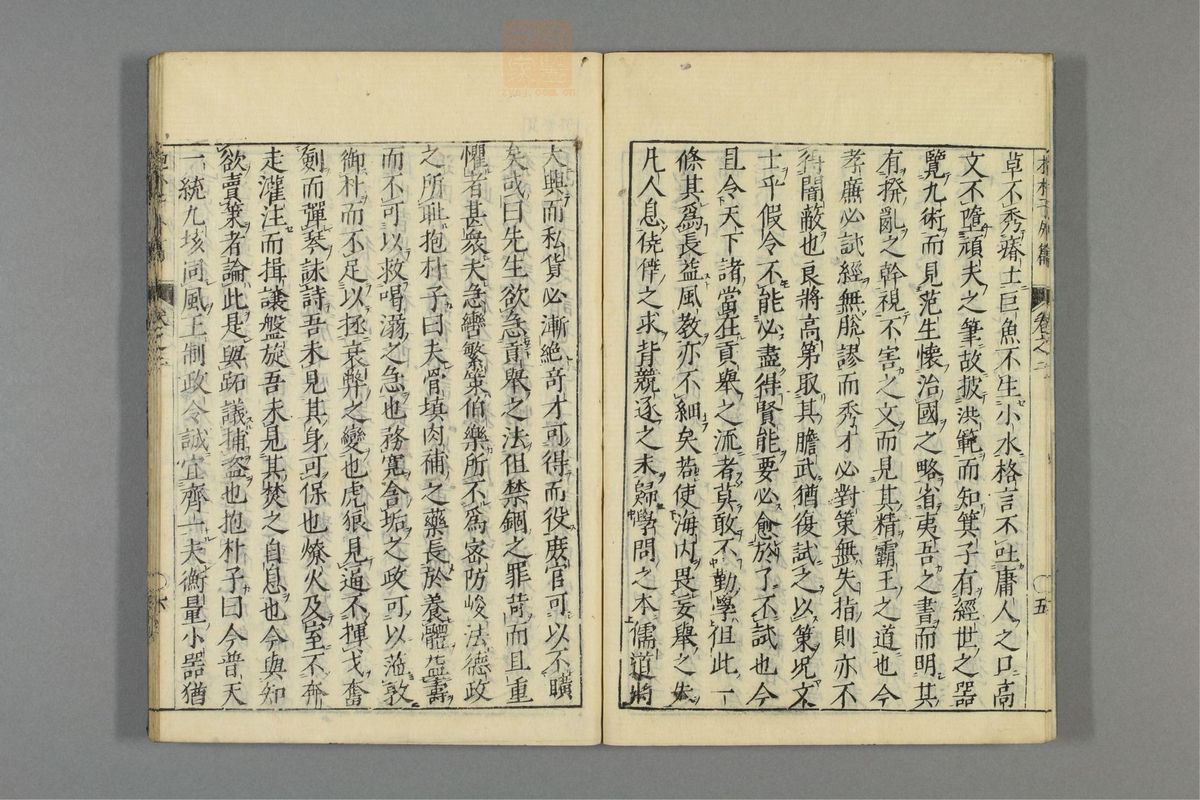 卓不秀瘠土巨魚不生小水格言不吐庸人之口高
文不墮頑夫之筆故披洪範而知箕子有經世之器
覽九術而見范生懷治國之略省夷吾之書而明其
有撥亂之幹視不害之文而見其精霸王之道也今
孝廉必試經無脫謬而秀才必對策無失指則亦不
得闇蔽也良將高第取其膽武猶復試之以策况文
士乎假令不能必盡得賢能要必愈於了不試也今
且令天下諸當在貢舉之流者莫敢不勤學但此一
條其爲長益風教亦不細矣若使海内畏妄舉之失
凡人息僥倖之求背競逐之末歸學問之本儒道將
大興而私貨必漸絶奇才可得而役庶官可以不曠
矣或曰先生欲急貢舉之法但禁錮之罪苛而且重
懼者甚衆夫急轡繁策伯樂所不爲密防峻法德政
之所耻抱朴子曰夫骨填肉補之藥長於養體益壽
而不可以救喝溺之急也務寬含垢之政可以蒞敦
御朴而不足以拯衰弊之變也虎狼見逼不揮戈奮
劍而彈琴詠詩吾未見其身可保也燎火及室不奔
走灌注而揖讓盤旋吾未見其焚之自息也今與知
欲賣策者論此是與跖議捕盜也抱朴子曰今普天
一統九垓同風王制政令誠宜齊一夫衡量小器猶
抱朴子外篇
卷之二
五
六